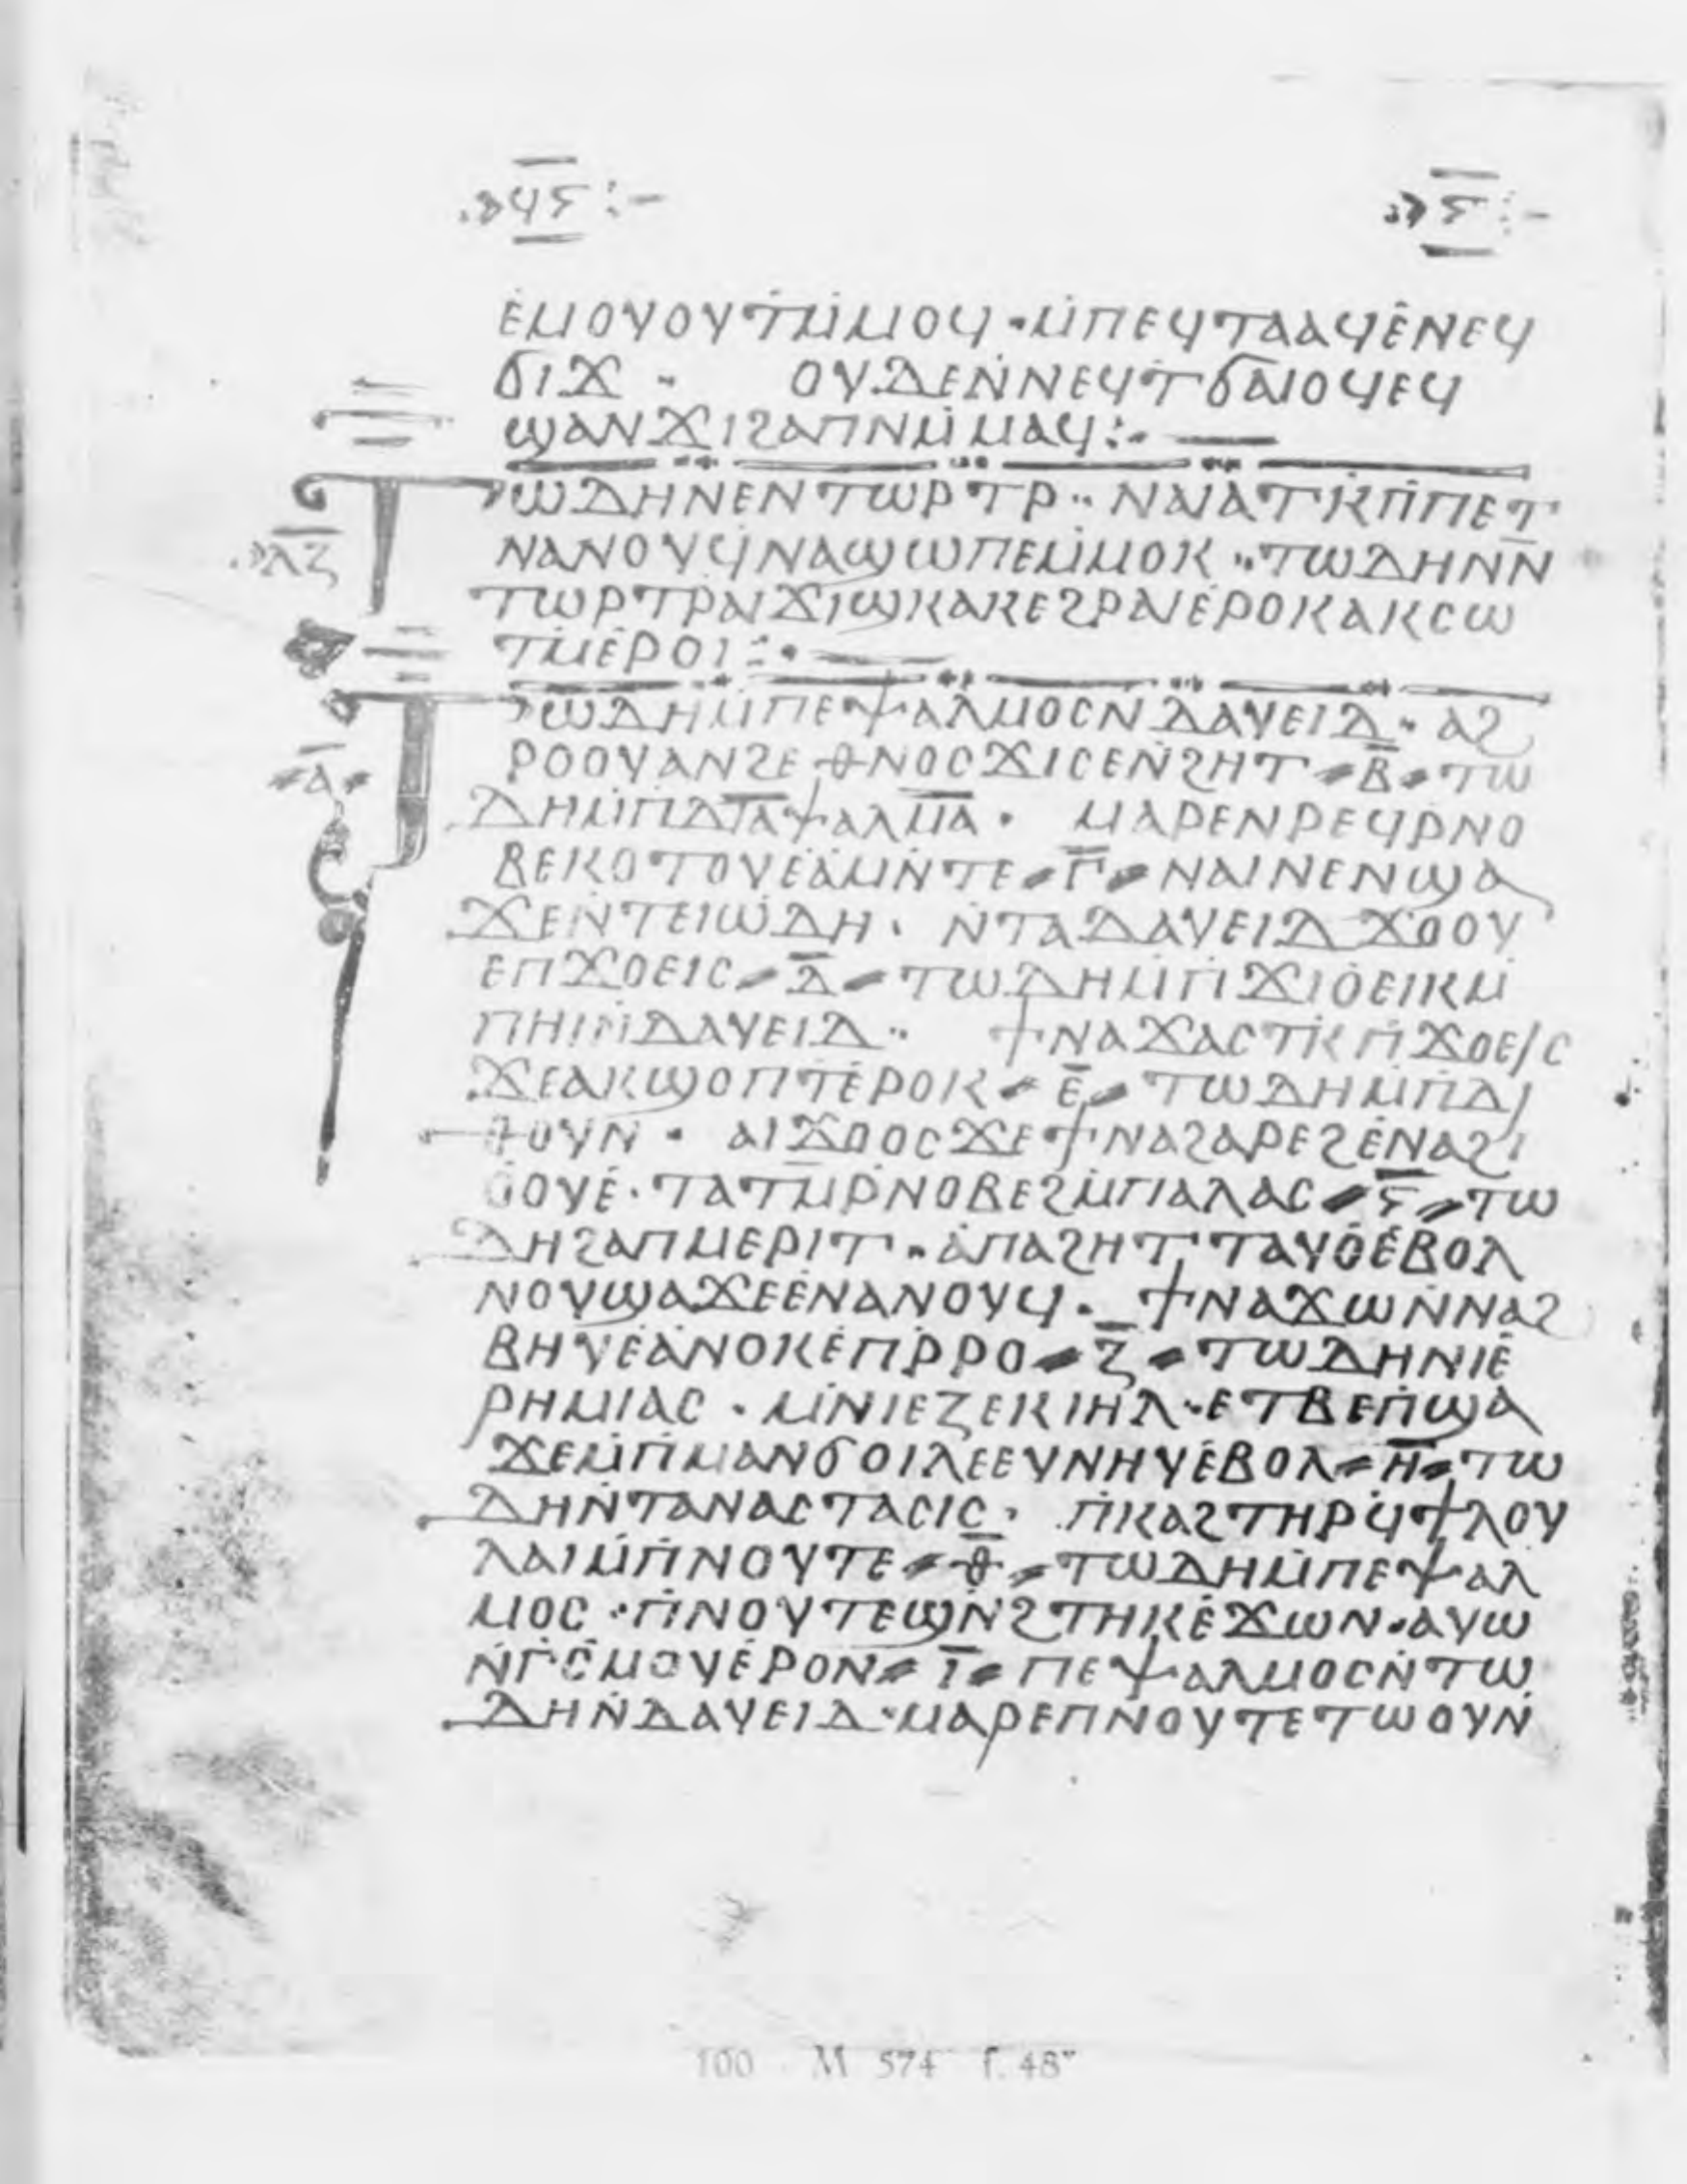 ϥⲋ :– ⲋ :–
ⲉⲙⲟⲩⲟⲩⲧⲙ̇ⲙⲟϥ · ⲙ̇ⲡⲉϥⲧⲁⲁϥⲉ̂ⲛⲉϥ
ϭⲓϫ · ⲟⲩⲇⲉⲛ̇ⲛⲉϥⲧϭⲁⲓⲟϥⲉϥ
ϣⲁⲛϫⲓϩⲁⲡⲛⲙ̇ⲙⲁϥ :·
ⲧⲱⲇⲏⲛⲉⲛⲧⲱⲣⲧⲣ ·· ⲛⲁⲓⲁⲧⲕ̇ⲡ̇ⲡⲉⲧ
ⲗ̅ⲍ̅
ⲛⲁⲛⲟⲩϥⲛⲁϣⲱⲡⲉⲙ̇ⲙⲟⲕ ·· ⲧⲱⲇⲏⲛ̇ⲛ̅
ⲧⲱⲣⲧⲣⲁⲓϫⲓϣⲕⲁⲕⲉϩⲣⲁⲓⲉ̇ⲣⲟⲕⲁⲕⲥⲱ
ⲧⲙ̇ⲉ̇ⲣⲟⲓ :·
ⲧⲱⲇⲏⲙ̇ⲡⲉⲯⲁⲗⲙⲟⲥⲛⲇⲁⲩⲉⲓⲇ ·· ⲁϩ
ⲣⲟⲟⲩⲁⲛϩⲉⲑⲛⲟⲥϫⲓⲥⲉⲛ̇ϩⲏⲧ ⸗ ⲃ̅ ⸗ ⲧⲱ
ⲁ̅
ⲇⲏⲙ̇ⲡ̇ⲇⲓ̅ⲁ̅ⲯⲁⲗⲙ̅ⲁ̅ · ⲙⲁⲣⲉⲛⲣⲉϥⲣⲛⲟ
ⲃⲉⲕⲟⲧⲟⲩⲉ̇ⲁ̇ⲙⲛ̇ⲧⲉ ⸗ ⲅ̅ ⸗ ⲛⲁⲓⲛⲉⲛϣⲁ
ϫⲉⲛ̇ⲧⲉⲓⲱ̇ⲇⲏ · ⲛ̇ⲧⲁⲇⲁⲩⲉⲓⲇϫⲟⲟⲩ
ⲉⲡϫⲟⲉⲓⲥ ⸗ ⲇ̅ ⸗ ⲧⲱⲇⲏⲙ̇ⲡ̇ϫⲓⲟ̇ⲉⲓⲕⲙ̇
ⲡⲏⲓⲛ̇ⲇⲁⲩⲉⲓⲇ ·· ϯⲛⲁϫⲁⲥⲧⲕ̇ⲡ̇ϫⲟⲉⲓⲥ
ϫⲉⲁⲕϣⲟⲡⲧ̇ⲉ̇ⲣⲟⲕ ⸗ ⲉ̅ ⸗ ⲧⲱⲇⲏⲙ̇ⲡ̇ⲇⲓ
ⲑⲟⲩⲛ · ⲁⲓϫⲟⲟⲥϫⲉϯⲛⲁϩⲁⲣⲉϩⲉ̇ⲛⲁϩⲓ
ⲟⲟⲩⲉ̇ · ⲧⲁⲧⲙ̇ⲣ̇ⲛⲟⲃⲉϩⲙ̇ⲡⲁⲗⲁⲥ ⸗ ⲋ̅ ⸗ ⲧⲱ
ⲇⲏϩⲁⲡⲙⲉⲣⲓⲧ ·· ⲁ̇ⲡⲁϩⲏⲧⲧⲁⲩⲟ̇ⲉ̇ⲃⲟⲗ
ⲛⲟⲩϣⲁϫⲉⲉ̇ⲛⲁⲛⲟⲩϥ · ϯⲛⲁϫⲱⲛ̇ⲛⲁϩ
ⲃⲏⲩⲉ̇ⲁ̇ⲛⲟⲕⲉ̇ⲡⲣ̇ⲣⲟ ⸗ ⲍ̅ ⸗ ⲧⲱⲇⲏⲛⲓⲉ̇
ⲣⲏⲙⲓⲁⲥ · ⲙⲛ̇ⲓⲉⲍⲉⲕⲓⲏⲗ · ⲉⲧⲃⲉⲡ̇ϣⲁ
ϫⲉⲙ̇ⲡ̇ⲙⲁⲛϭⲟⲓⲗⲉⲉⲩⲛⲏⲩⲉ̇ⲃⲟⲗ ⸗ ⲏ̅ ⸗ ⲧⲱ
ⲇⲏⲛ̇ⲧⲁⲛⲁⲥⲧⲁⲥⲓⲥ · ⲡ̇ⲕⲁϩⲧⲏⲣϥ̇ϯⲗⲟⲩ
ⲗⲁⲓⲙ̇ⲡ̇ⲛⲟⲩⲧⲉ ⸗ ⲑ̅ ⸗ ⲧⲱⲇⲏⲙ̇ⲡⲉⲯⲁⲗ
ⲙⲟⲥ · ⲡ̇ⲛⲟⲩⲧⲉϣⲛ̇ϩⲧⲏⲕⲉ̇ϫⲱⲛ · ⲁⲩⲱ
ⲛ̇ⲅ̇ⲥ̇ⲙⲟⲩⲉ̇ⲣⲟⲛ ⸗ ⲓ̅ ⸗ ⲡⲉⲯⲁⲗⲙⲟⲥⲛ̇ⲧⲱ
ⲇⲏⲛ̇ⲇⲁⲩⲉⲓⲇ · ⲙⲁⲣⲉⲡⲛⲟⲩⲧⲉⲧⲱⲟⲩⲛ̇
100 · M 574 f. 48ᵛ